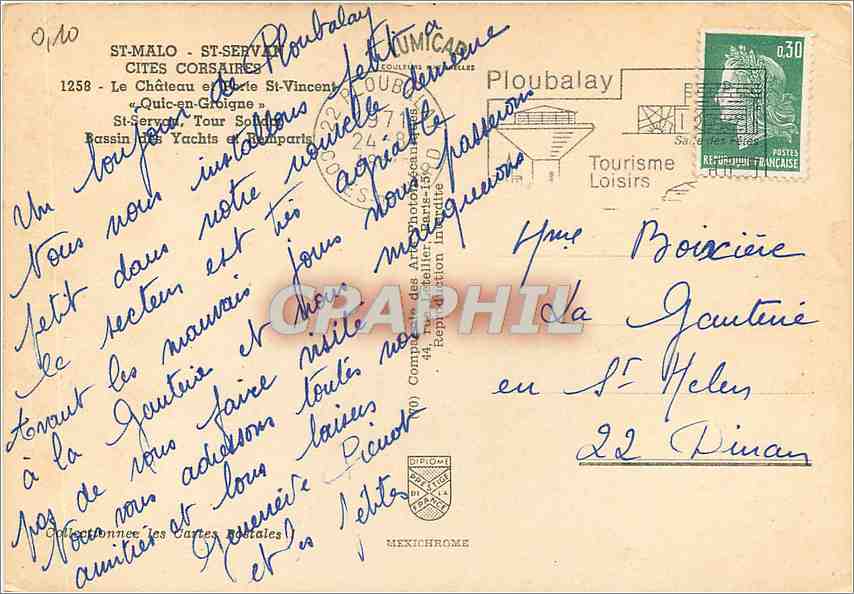 0,10
ST-MALO - ST-SERVAN
CITES CORSAIRES
1258 - Le Château et Porte St-Vincent
« Quic-en-Groigne »
St-Servan, Tour Solidor
Bassin des Yachts et Remparts
Un bonjour de Ploubalay
Nous nous installons petit à
petit dans notre nouvelle demeure
le secteur est très agréable
Avant les mauvais jours nous passerons
à la Gauterie et nous manquerons
pas de vous faire visite.
Nous vous adressons toutes nos
amitiés et bons baisers
Geneviève Pierrot
et les petites
Collectionnez les Cartes Postales
LUMICAP
COULEURS NATURELLES
22 PLOUBALAY
1971
24-8
COTES
Ploubalay
Salle des Fêtes
Tourisme
Loisirs
0,30
POSTES
REPUBLIQUE FRANÇAISE
(70) Compagnie des Arts Photomécaniques
44, rue Letellier, Paris-15e
Reproduction interdite
CRAPHIL
Mme Boixière
La Gauterie
en St Helen
22 Dinan
DIPLOME
PRESTIGE
DE LA
FRANCE
MEXICHROME